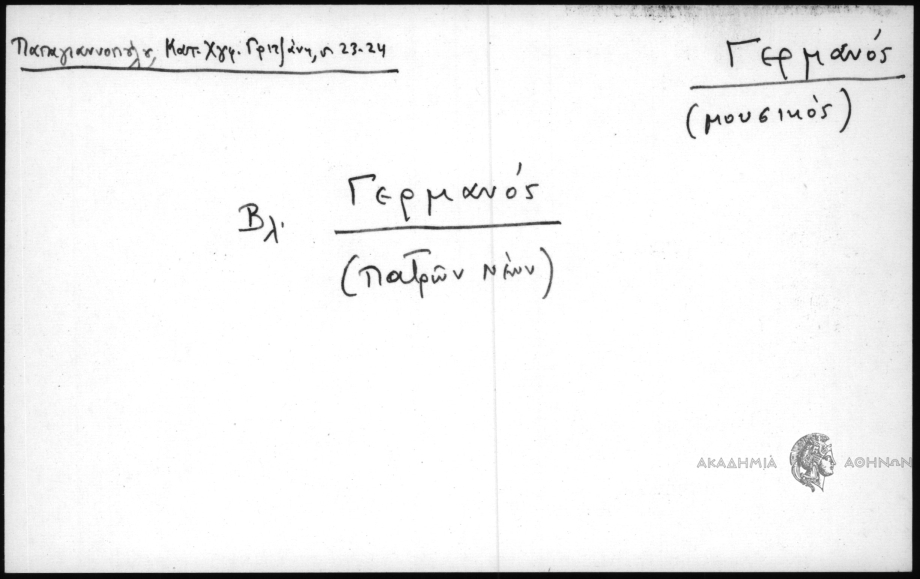 Παπαγιαννοπούλου, Κατ. Χγφ. Γριτζάνη, σ. 23-24
Γερμανός
(μουσικός)
Βλ. Γερμανός
(Πατρῶν Νέων)
ΑΚΑΔΗΜΙΑ ΑΘΗΝΩΝ